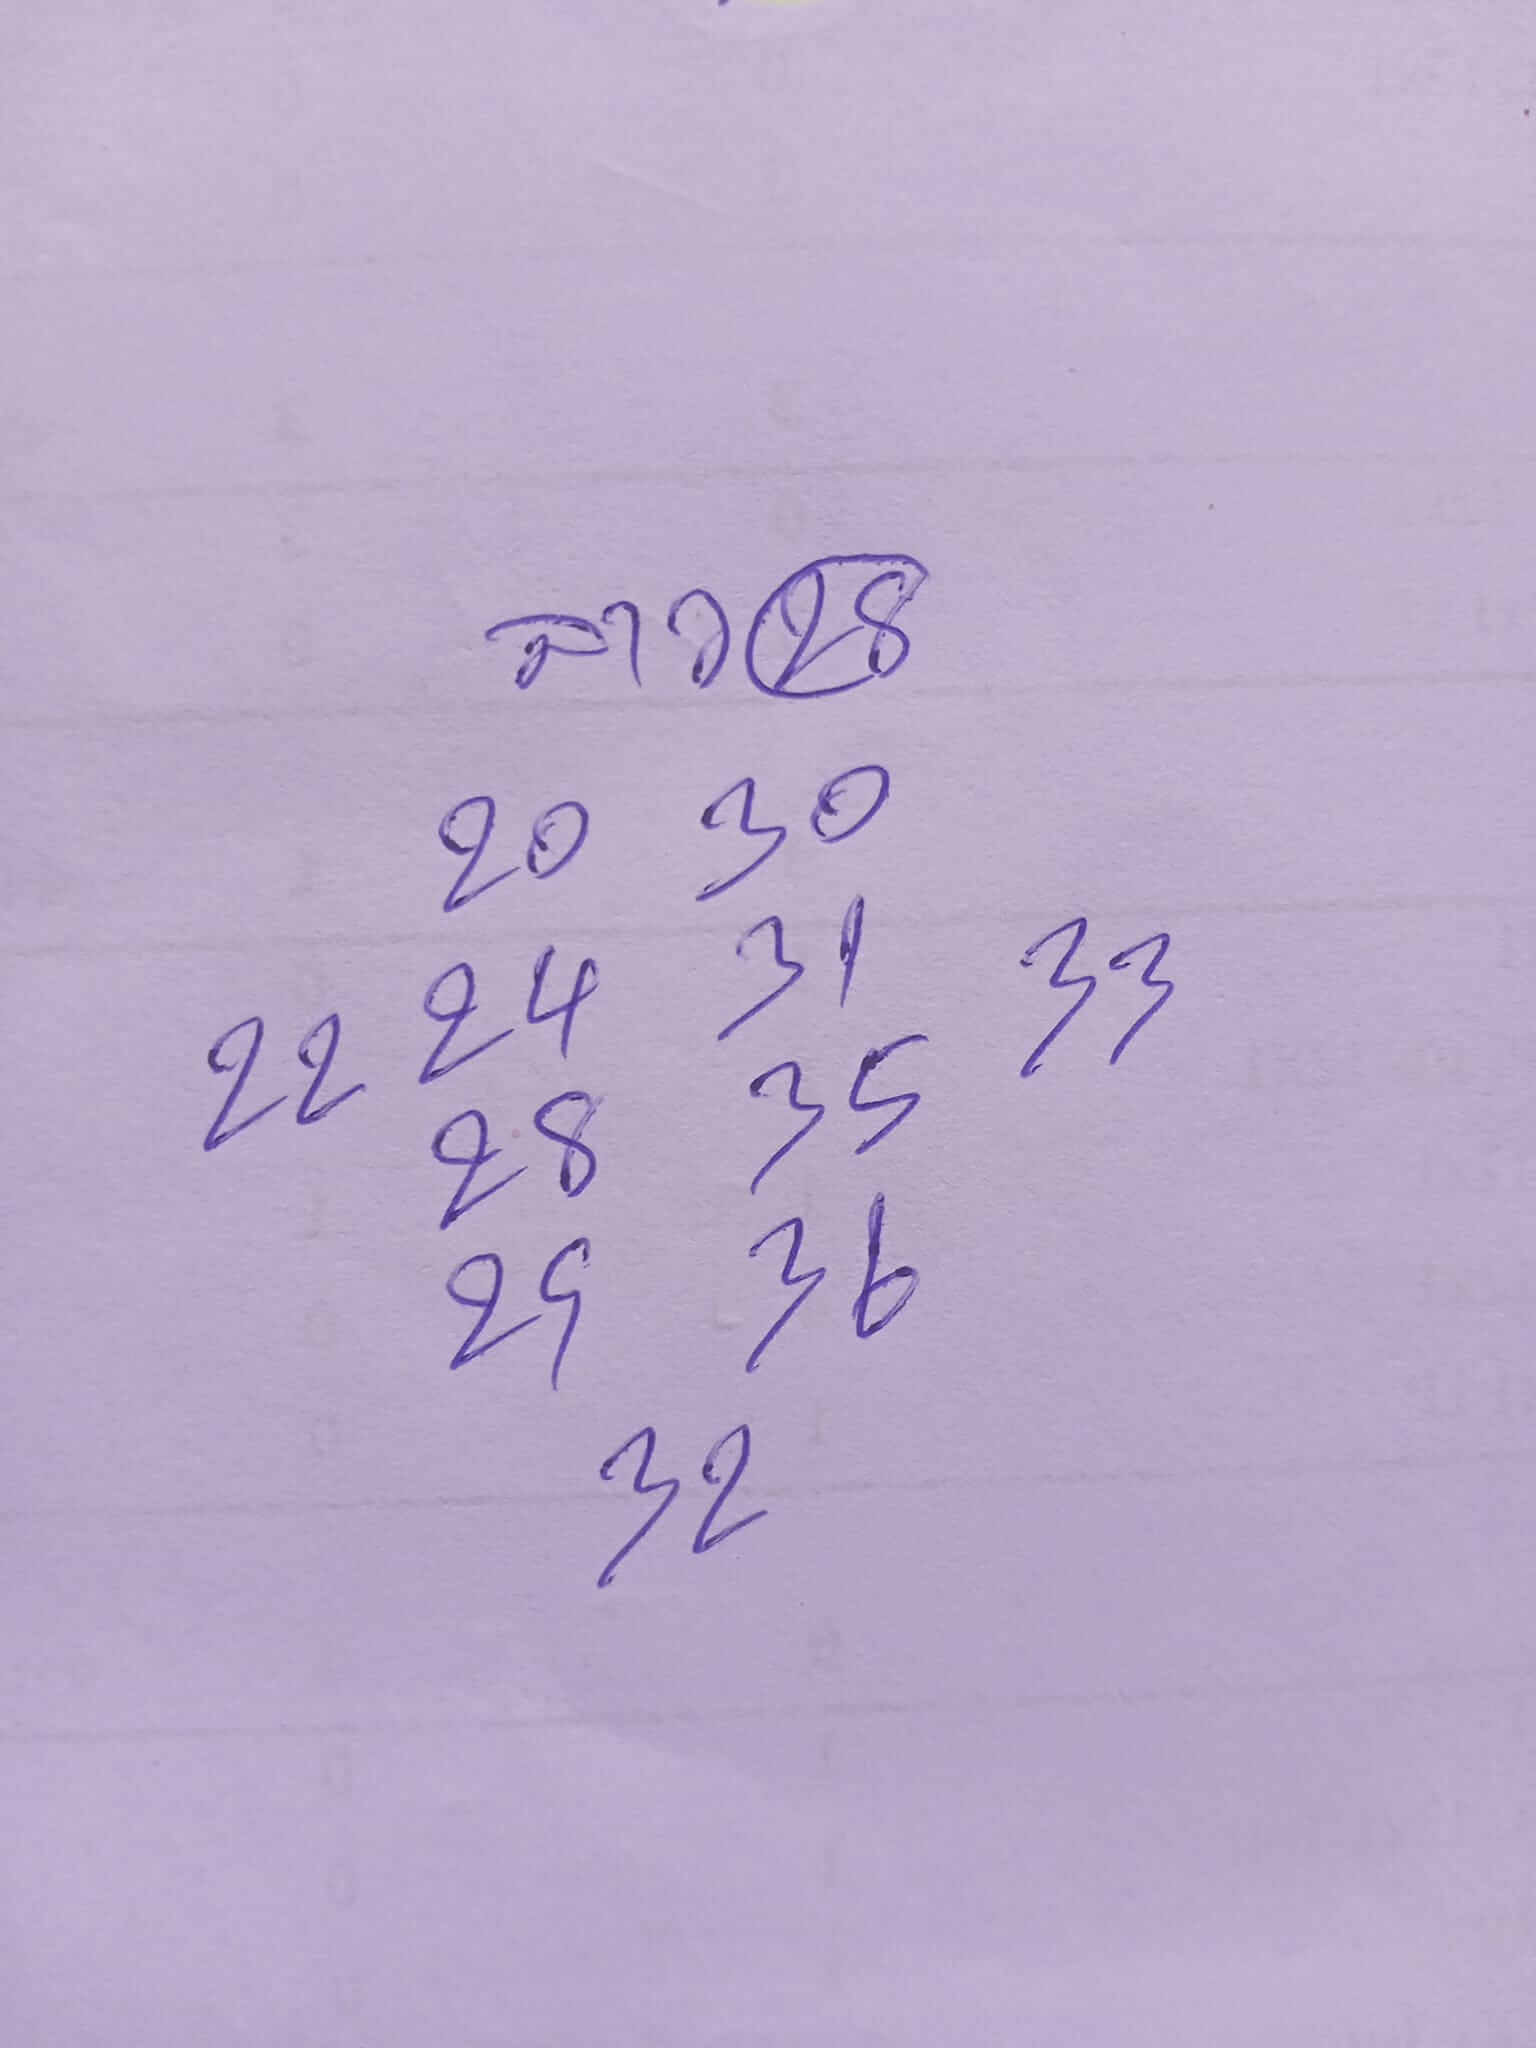 ลาว 28
20 30
24 31 33
22 28 35
29 36
32